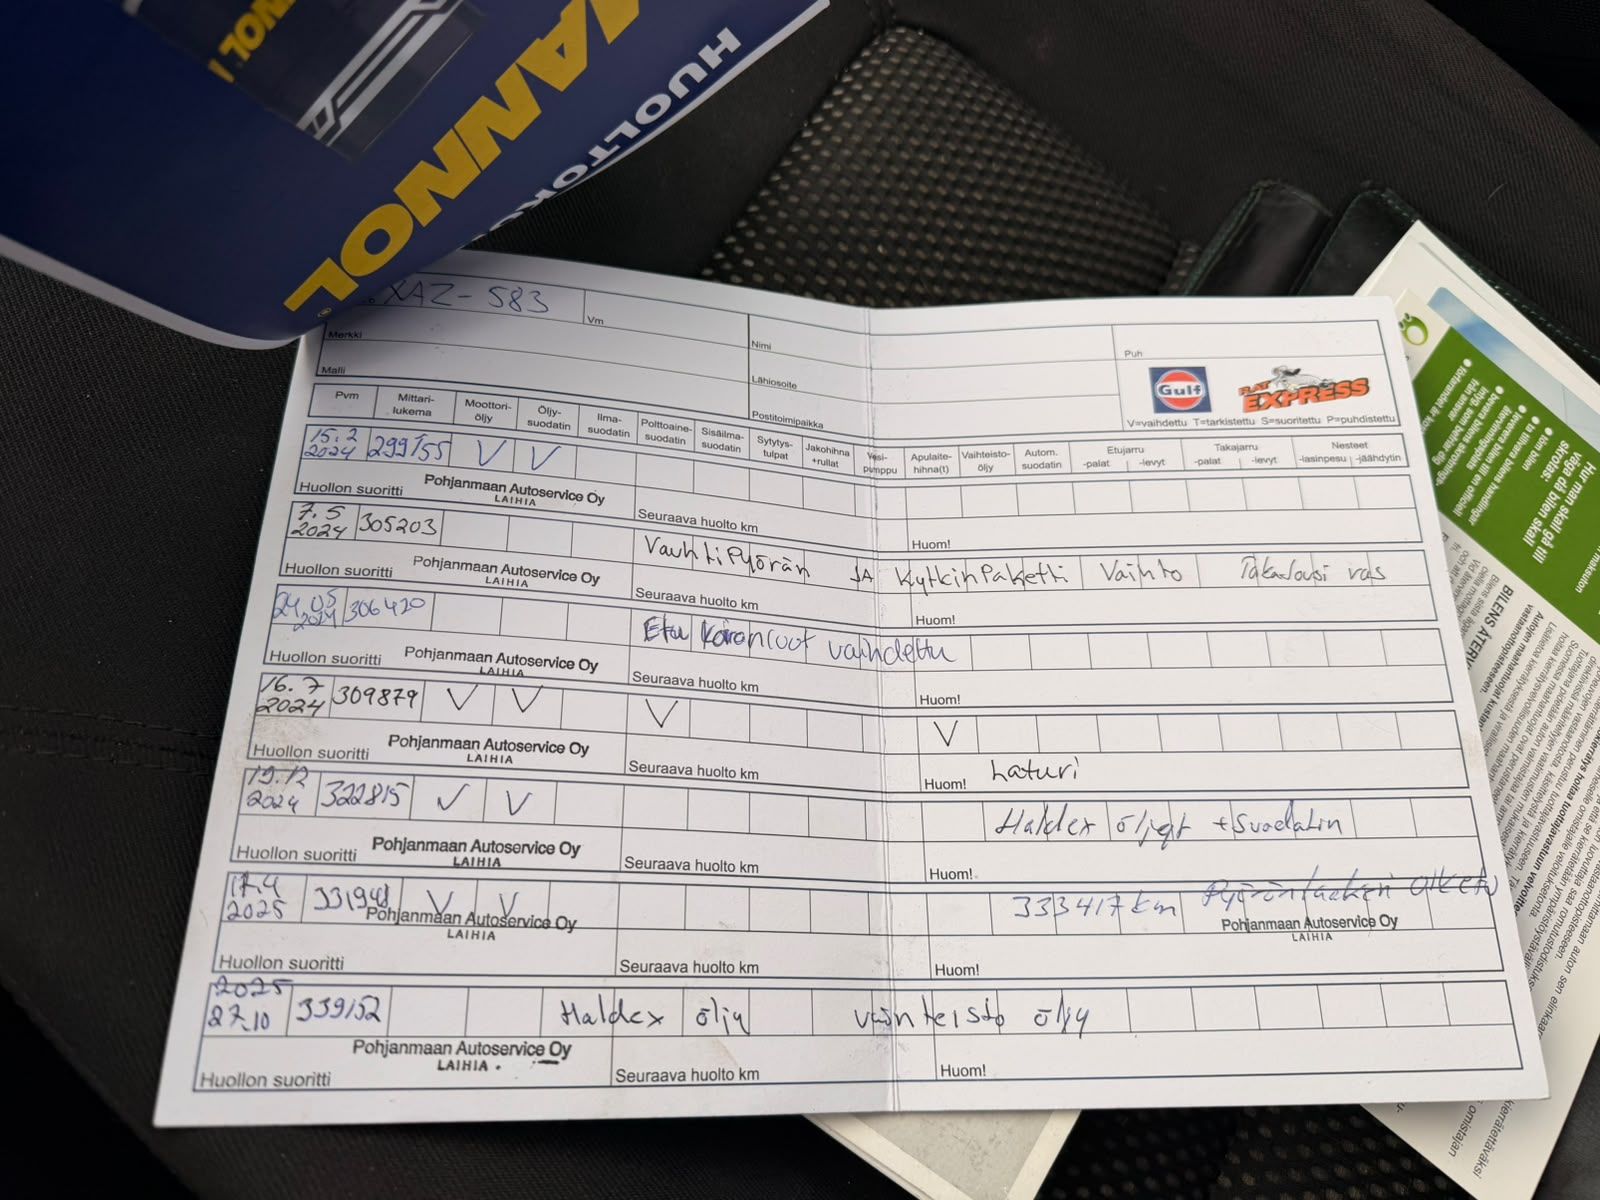 MANNOL
HUOLTOK
XAZ-583
Vm
Merkki
Nimi
Puh
Malli
Lähiosoite
Gulf
FLAT EXPRESS
Postitoimipaikka
V=vaihdettu T=tarkistettu S=suoritettu P=puhdistettu
Pvm Mittari-lukema Moottori-öljy Öljy-suodatin Ilma-suodatin Polttoaine-suodatin Sisäilma-suodatin Sytytys-tulpat Jakohihna +rullat Vesi-pumppu Apulaite-hihna(t) Vaihteisto-öljy Autom. suodatin Etujarru -palat -levyt Takajarru -palat -levyt Nesteet -lasinpesu -jäähdytin
15.2 2024 299155 V V
Huollon suoritti Pohjanmaan Autoservice Oy LAIHIA Seuraava huolto km Huom!
7.5 2024 305203 Vauhtipyörän JA Kytkinpaketti Vaihto Takalousi vas
Huollon suoritti Pohjanmaan Autoservice Oy LAIHIA Seuraava huolto km Huom!
24.05 2024 306420 Etu koiranluut vaihdettu
Huollon suoritti Pohjanmaan Autoservice Oy LAIHIA Seuraava huolto km Huom!
16.7 2024 309879 V V V V
Huollon suoritti Pohjanmaan Autoservice Oy Seuraava huolto km Huom! Laturi
19.12 2024 322815 V V Haldex öljyt +Suodatin
Huollon suoritti Pohjanmaan Autoservice Oy LAIHIA Seuraava huolto km Huom!
17.4 2025 331948 V V 333417 km Pyöränlaakeri oikea
Pohjanmaan Autoservice Oy LAIHIA Pohjanmaan Autoservice Oy LAIHIA
Huollon suoritti Seuraava huolto km Huom!
2025 27.10 339152 Haldex öljy vaihteisto öljy
Huollon suoritti Pohjanmaan Autoservice Oy LAIHIA Seuraava huolto km Huom!
Hur man skall gå till
väga då bilen skall
skrotas:
BILENS ÅTERV